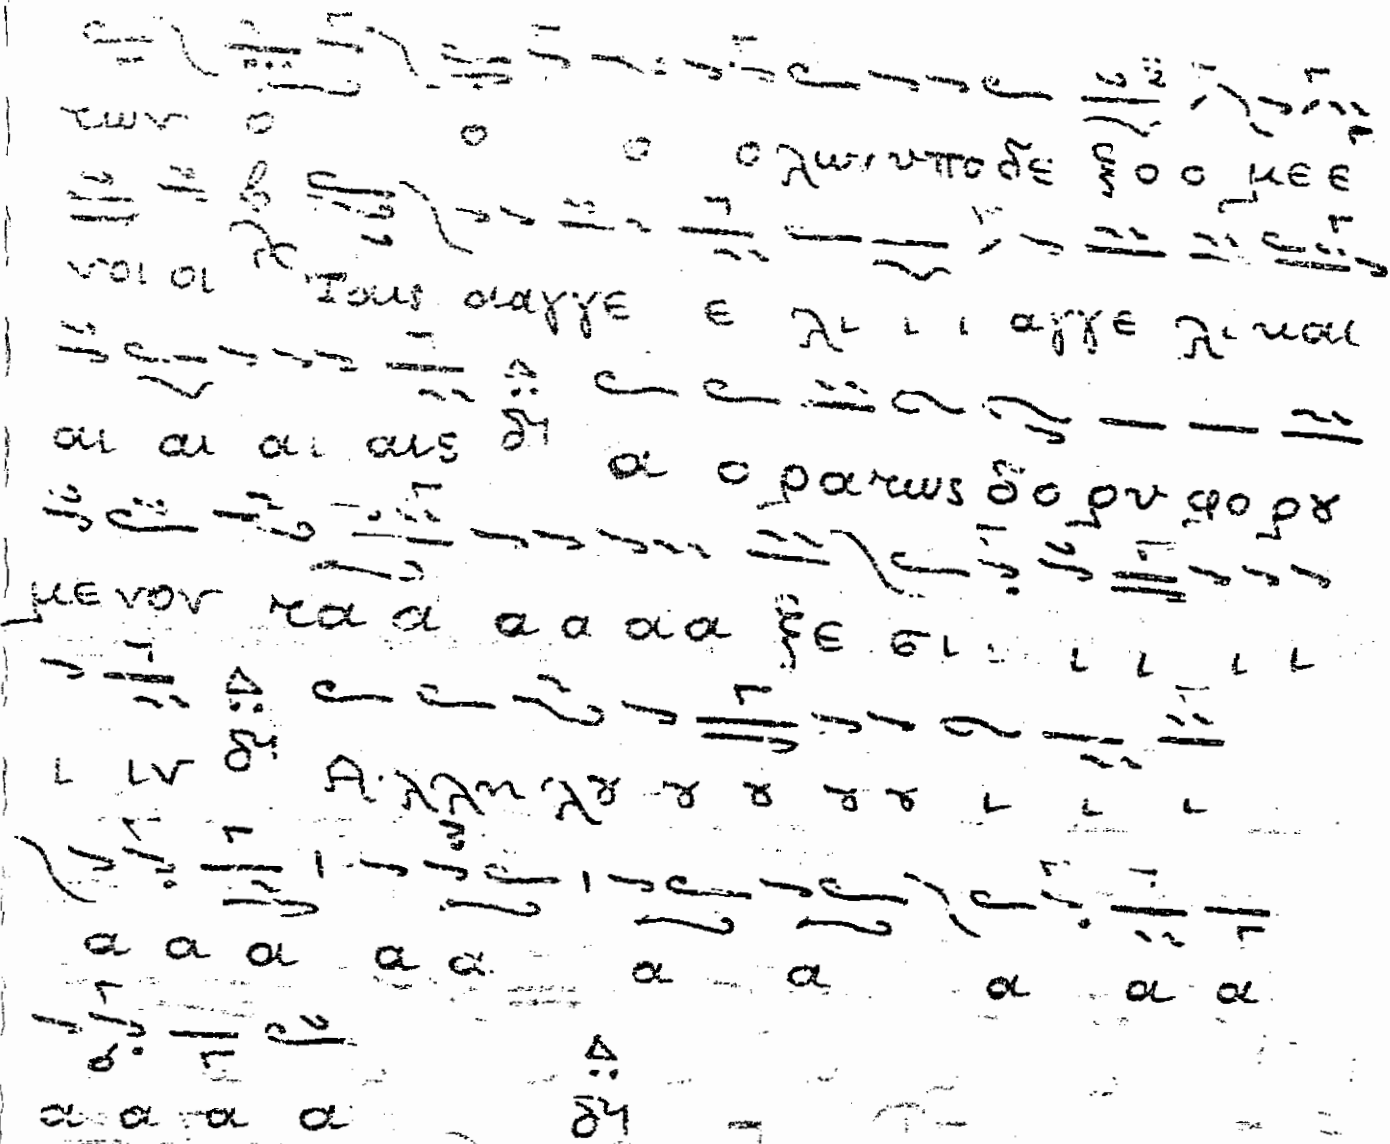 των ο ο ο ο λων υπο δε ξο ο με ε
νοι οι Τους α αγγε ε λι ι ι αγγε λι και
αι αι αι αις δι α ο ρατως δο ρυ φο ρȣ
με νον τα α α α α α ξε σι ι ι ι ι ι
ι ιν δι Αλλη λȣ ȣ ȣ ȣ ȣ ι ι ι
α α α α α α α α α α
α α α α δι